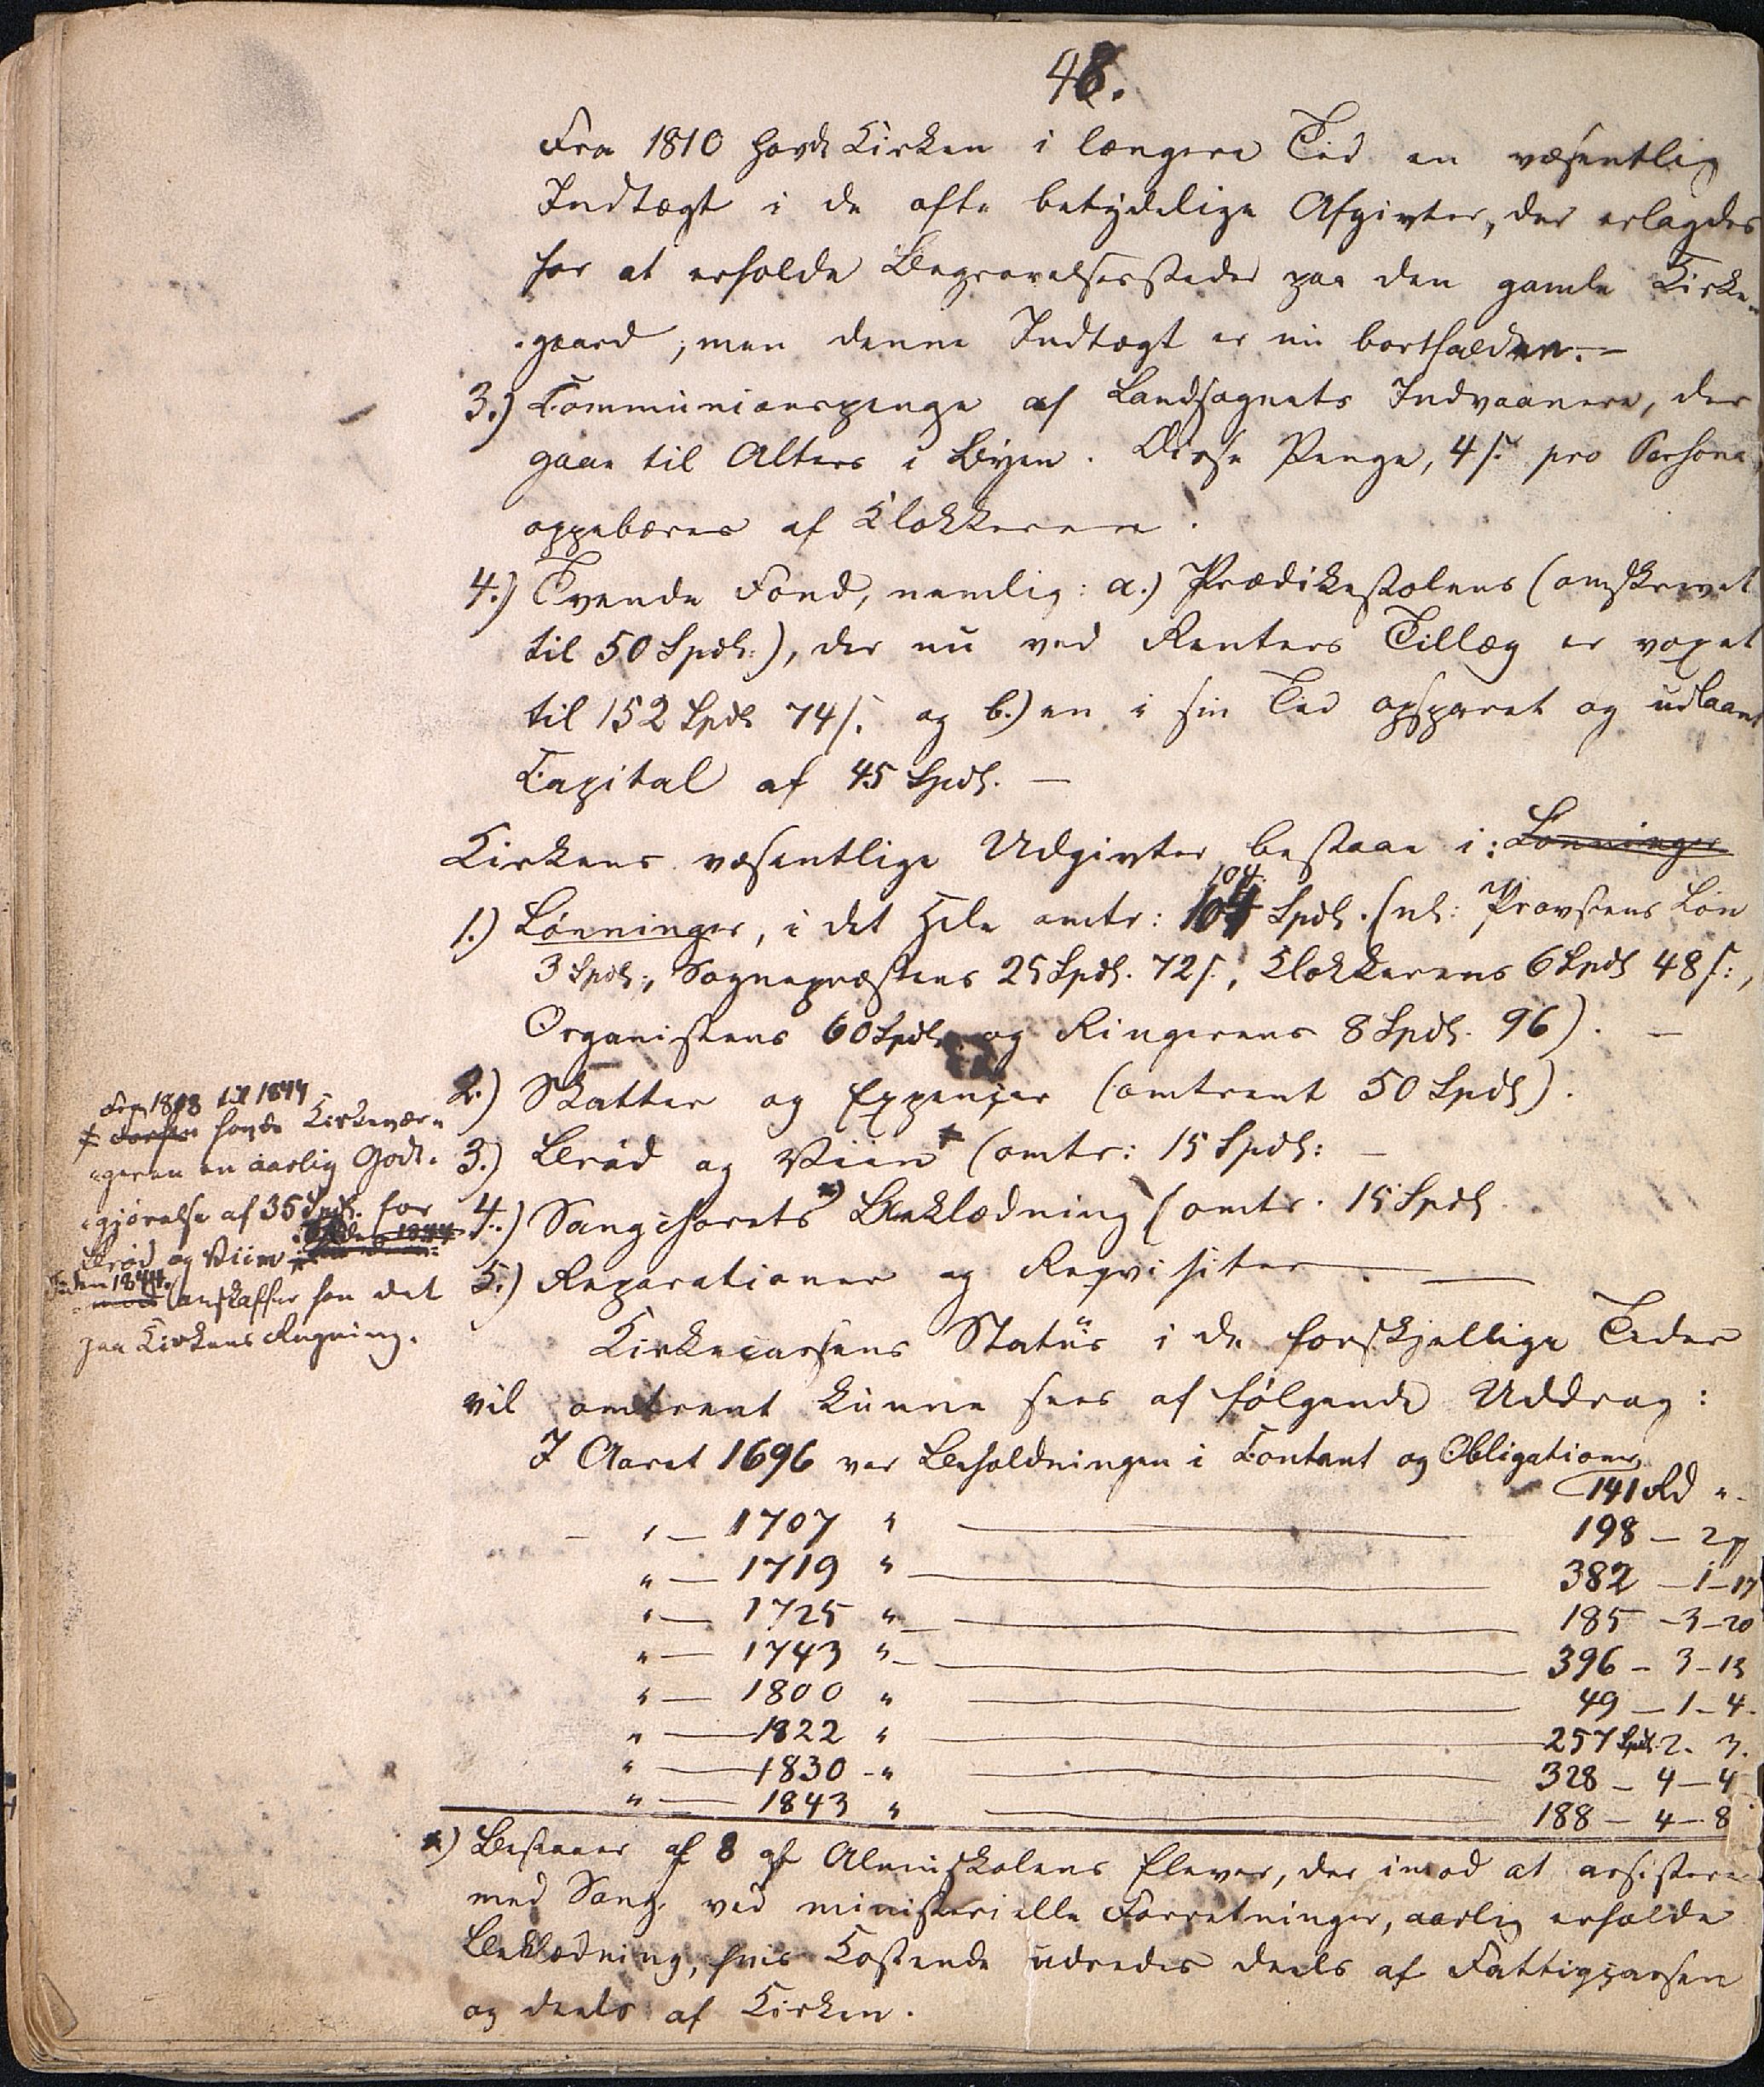 48.
Fra 1810 havde Kirken i længere Tid en væsentlig
Indtægt i de ofte betydelige Afgivter, der erlagdes
for at erholde Begravelsessteder paa den gamle Kirke-
gaard, men denne Indtægt er nu bortfalden.—
3.) Communionspenge af Landsognets Indvaanere, der
gaae til Alters i Byen. Disse Penge, 4 ſ. pro Persona
oppebæres af Klokkeren.
4.) Tvende Fond, nemlig: a.) Prædikestolens (omskrevet
til 50 Spdlr:), der nu ved Renters Tillæg er voxet
til 152 Spdlr 74 ſ. og b.) en i sin Tid opsparet og udlaant
Capital af 45 Spdlr. —
Kirkens væsentlige Udgivter bestaae i: Lønninger
104.
1.) Lønninger, i det Hele omtr: 104 Spdlr. (nl: Provstens Løn
3 Spdlr:, Sognepræstens 25 Spdlr. 72 ſ., Klokkerens 6 Spdlr 48 ſ:,
Organistens 60 Spdlr. og Ringerens 8 Spdlr. 96). —
2.) Skatter og Expenser (omtrent 50 Spdlr).
3.) Brød og Viin (omtr: 15 Spdlr: —
4.) Sangchorets *) Beklædning (omtr. 15 Spdlr.
5.) Reparationer og Reqvisiter — —
Kirkecassens Status i de forskjellige Tider
vil omtrent kunne sees af følgende Uddrag:
I Aaret 1696 var Beholdningen i Contant og Obligationer
141 Rd "-
- "— 1707 " — 198 — 2
"— 1719 " — 382 — 1 — 17
"— 1725 " — 185 — 3 — 20
"— 1743 " — 396 — 3 — 13
"— 1800 " — 49 — 1 — 4.
"— 1822 " — 257 Spdlr. 2. 3.
"— 1830 - " — 328 — 4 — 4
"— 1843 " — 188 — 4 — 8
*) Bestaaer af 8 af Almuskolens Elever, der imod at assistere
med Sang ved ministerielle Forretninger, aarlig erholde
Beklædning, hvis Kostende udredes deels af Fattigcassen
og deels af Kirken.
Fra 1818 til 1844
havde Kirkevær-
geren en aarlig Godt-
gjørelse af 35 Spdlr. for
Siden 1844
Brød og Viin
Siden 1844.
anskaffer han det
paa Kirkens Regning.